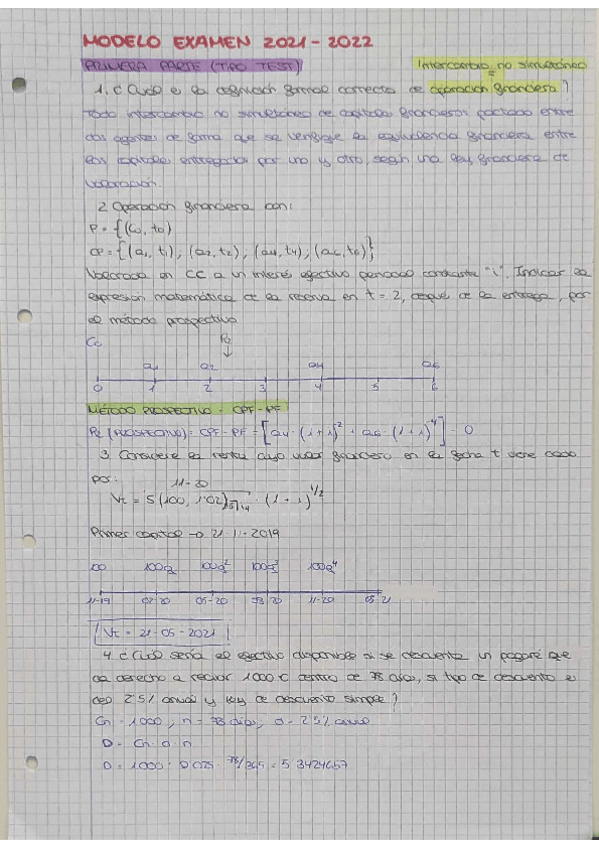 MODELO EXAMEN 2021-2022
PRIMERA PARTE (TIPO TEST)
Intercambio no simultáneo
=
1. ¿Cuál es la definición formal correcta de operación financiera?
Todo intercambio no simultáneo de capitales financieros pactado entre
dos agentes de forma que se verifique la equivalencia financiera entre
los capitales entregados por uno y otro, según una ley financiera de
valoración.
2 Operación financiera con:
P = {(C0, t0)
CP = {(a1, t1), (a2, t2), (a4, t4), (a6, t6)}
Valorada en CC a un interés efectivo periodo constante "i". Indicar la
expresión matemática de la reserva en t = 2, después de la entrega, por
el método prospectivo
C0
R2
a1 a2 a4 a6
0 1 2 3 4 5 6
MÉTODO PROSPECTIVO - CPF-PF
R2 (PROSPECTIVO) = CPF - PF = [a4 · (1+i)^-2 + a6 · (1+i)^-4] - 0
3 Considere la renta cuyo valor financiero en la fecha t viene dado
por:
11-20
Vt = S(100, 1'02)5 · (1+i)^1/2
Primer capital → 21-11-2019
100 100q 100q² 100q³ 100q⁴
11-19 02-20 05-20 08-20 11-20 05-21
Vt = 21-05-2021
4 ¿Cuál sería el efectivo disponible si se descuenta un pagaré que
da derecho a recibir 1000€ dentro de 78 días, si tipo de descuento es
del 2'5% anual y ley de descuento simple?
Cn = 1000, n = 78 días, d = 2'5% anual
D = Cn · d · n
D = 1000 · 0'025 · 78/365 = 5'3424657